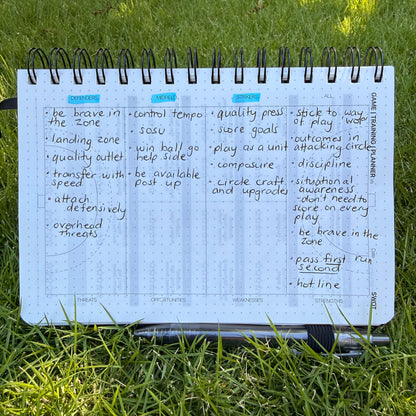 DEFENDERS
• be brave in
the zone
• landing zone
• quality outlet
• transfer with
speed
• attach
defensively
• overhead
threats
THREATS
• control tempo
• SOSU
• win ball go
help side
• be available
post up
OPPORTUNITIES
STRIKERS
• quality press
• score goals
• play as a unit
• composure
• circle craft
and upgrades
WEAKNESSES
ALL
• stick to way
of play
• outcomes in
attacking circle
• discipline
• situational
awareness
- don't need to
score on every
play
• be brave in the
zone
• pass first run
second
• hotline
STRENGTHS
GAME | TRAINING | PLANNER
SWOT